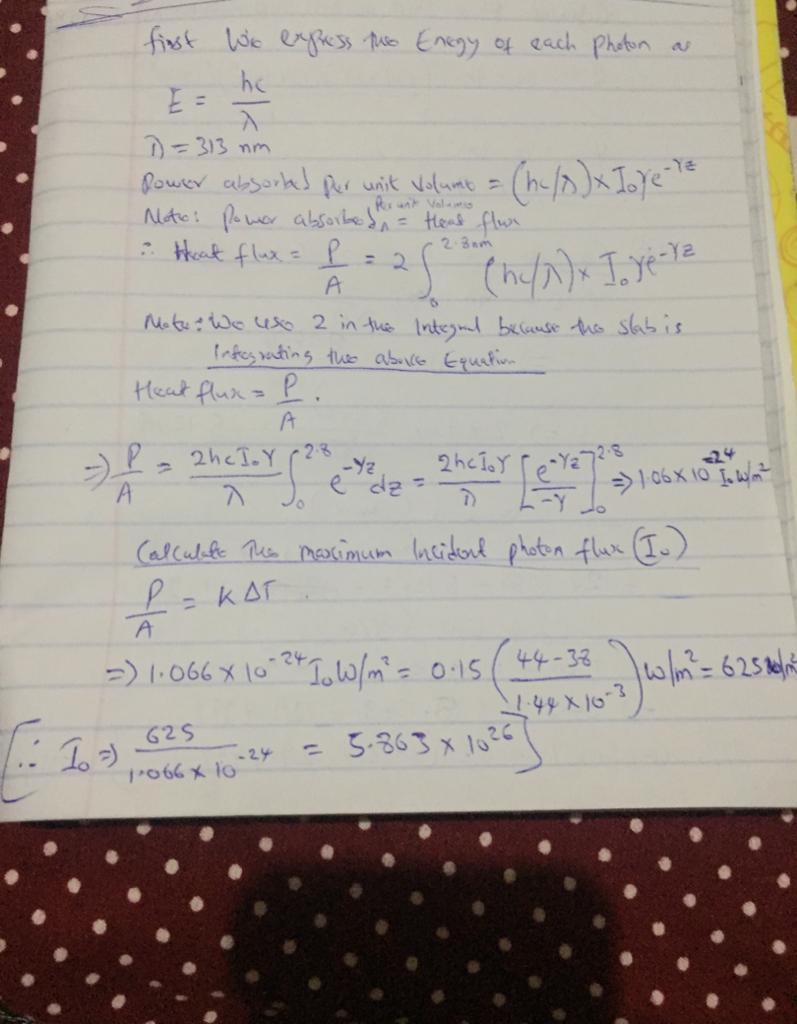 first We express the Enegy of each photon as
E = hc/λ
λ = 313 nm
Power absorbed per unit Volume = (hc/λ) × I₀γe^-γz
Note: Power absorbed per unit Volume = Heat flux
∴ Heat flux = P/A = 2∫₀^2.8mm (hc/λ) × I₀γe^-γz
Note: We use 2 in the Integral because the slab is
Integrating the above Equation
Heat flux = P/A.
⇒ P/A = 2hcI₀γ/λ ∫₀^2.8 e^-γz dz = 2hcI₀γ/λ [e^-γz/-γ]₀^2.8 ⇒ 1.06 × 10^-24 I₀ W/m²
Calculate The maximum Incident photon flux (I₀)
P/A = KΔT.
⇒ 1.066 × 10^-24 I₀ W/m² = 0.15 (44-38/1.44 × 10^-3) W/m² = 625 W/m²
[∴ I₀ ⇒ 625/1.066 × 10^-24 = 5.863 × 10^26]